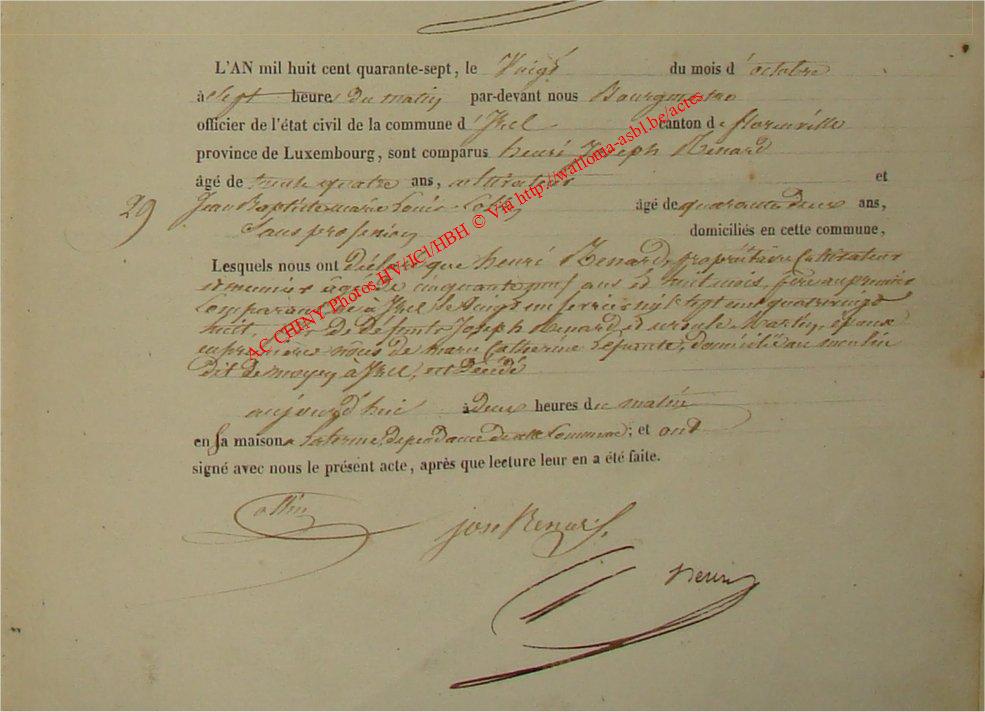 L'AN mil huit cent quarante-sept, le Vingt du mois d'octobre
à Sept heures du matin par-devant nous Bourgmestre
officier de l'état civil de la commune d'Izel canton de florenville
province de Luxembourg, sont comparus henri Joseph Renard
âgé de trente quatre ans, cultivateur et
29 Jean Baptiste marie Louis Collin âgé de quarante deux ans,
Sans profession domiciliés en cette commune,
Lesquels nous ont déclaré que henri Renard, propriétaire Cultivateur
et meunier âgé de cinquante neuf ans et huit mois, père au premier
Comparant né à Izel le vingt un fevrier mil sept cent quatre vingt
huit, de defunts Joseph Renard et ursule Martin, époux
en premières nôces de marie Catherine domicilié au moulin
dit de moyen à Izel, est décédé
aujourd'hui à deux heures du matin
en sa maison dependance de cette Commune; et ont
signé avec nous le présent acte, après que lecture leur en a été faite.
Collin
jos Renard
AC CHINY Photos HV/ICI/HBH © Via http://walloma-asbl.be/actes